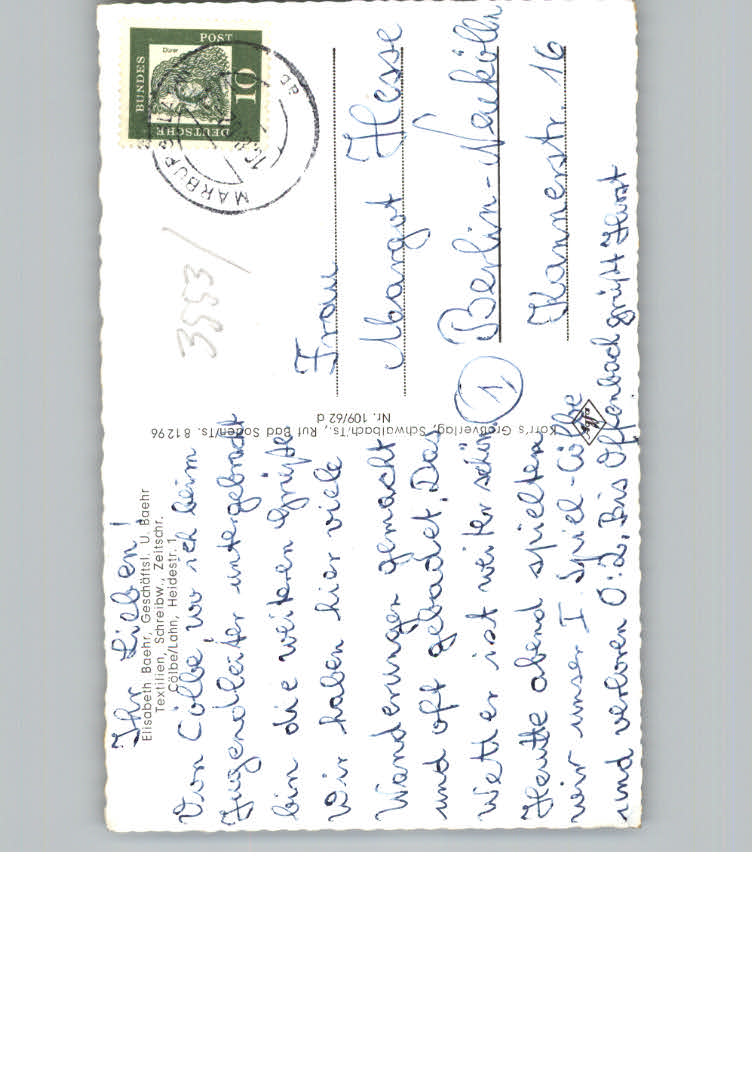 Ihr Lieben!
Elisabeth Baehr, Geschäftsl. U. Baehr
Textilien, Schreibw., Zeitschr.
Cölbe/Lahn, Heidestr. 1
Von Cölbe, wo ich beim
Jugendleiter untergebracht
bin die weiteren Grüße
Wir haben hier viele
Wanderungen gemacht
und oft gebadet. Das
Wetter ist weiter schön
Heute abend spielten
wir unser I. Spiel-Cölbe
und verloren 0:2. Bis Offenbach grüßt Horst
Korr's Großverlag, Schwalbach/Ts., Ruf Bad Soden/Ts. 81296
Nr. 109/62 d
3553/
DEUTSCHE BUNDES POST
Dürer
10
MARBURG
Frau
Margot Hesse
1
Berlin-Neukölln
Kannerstr. 16